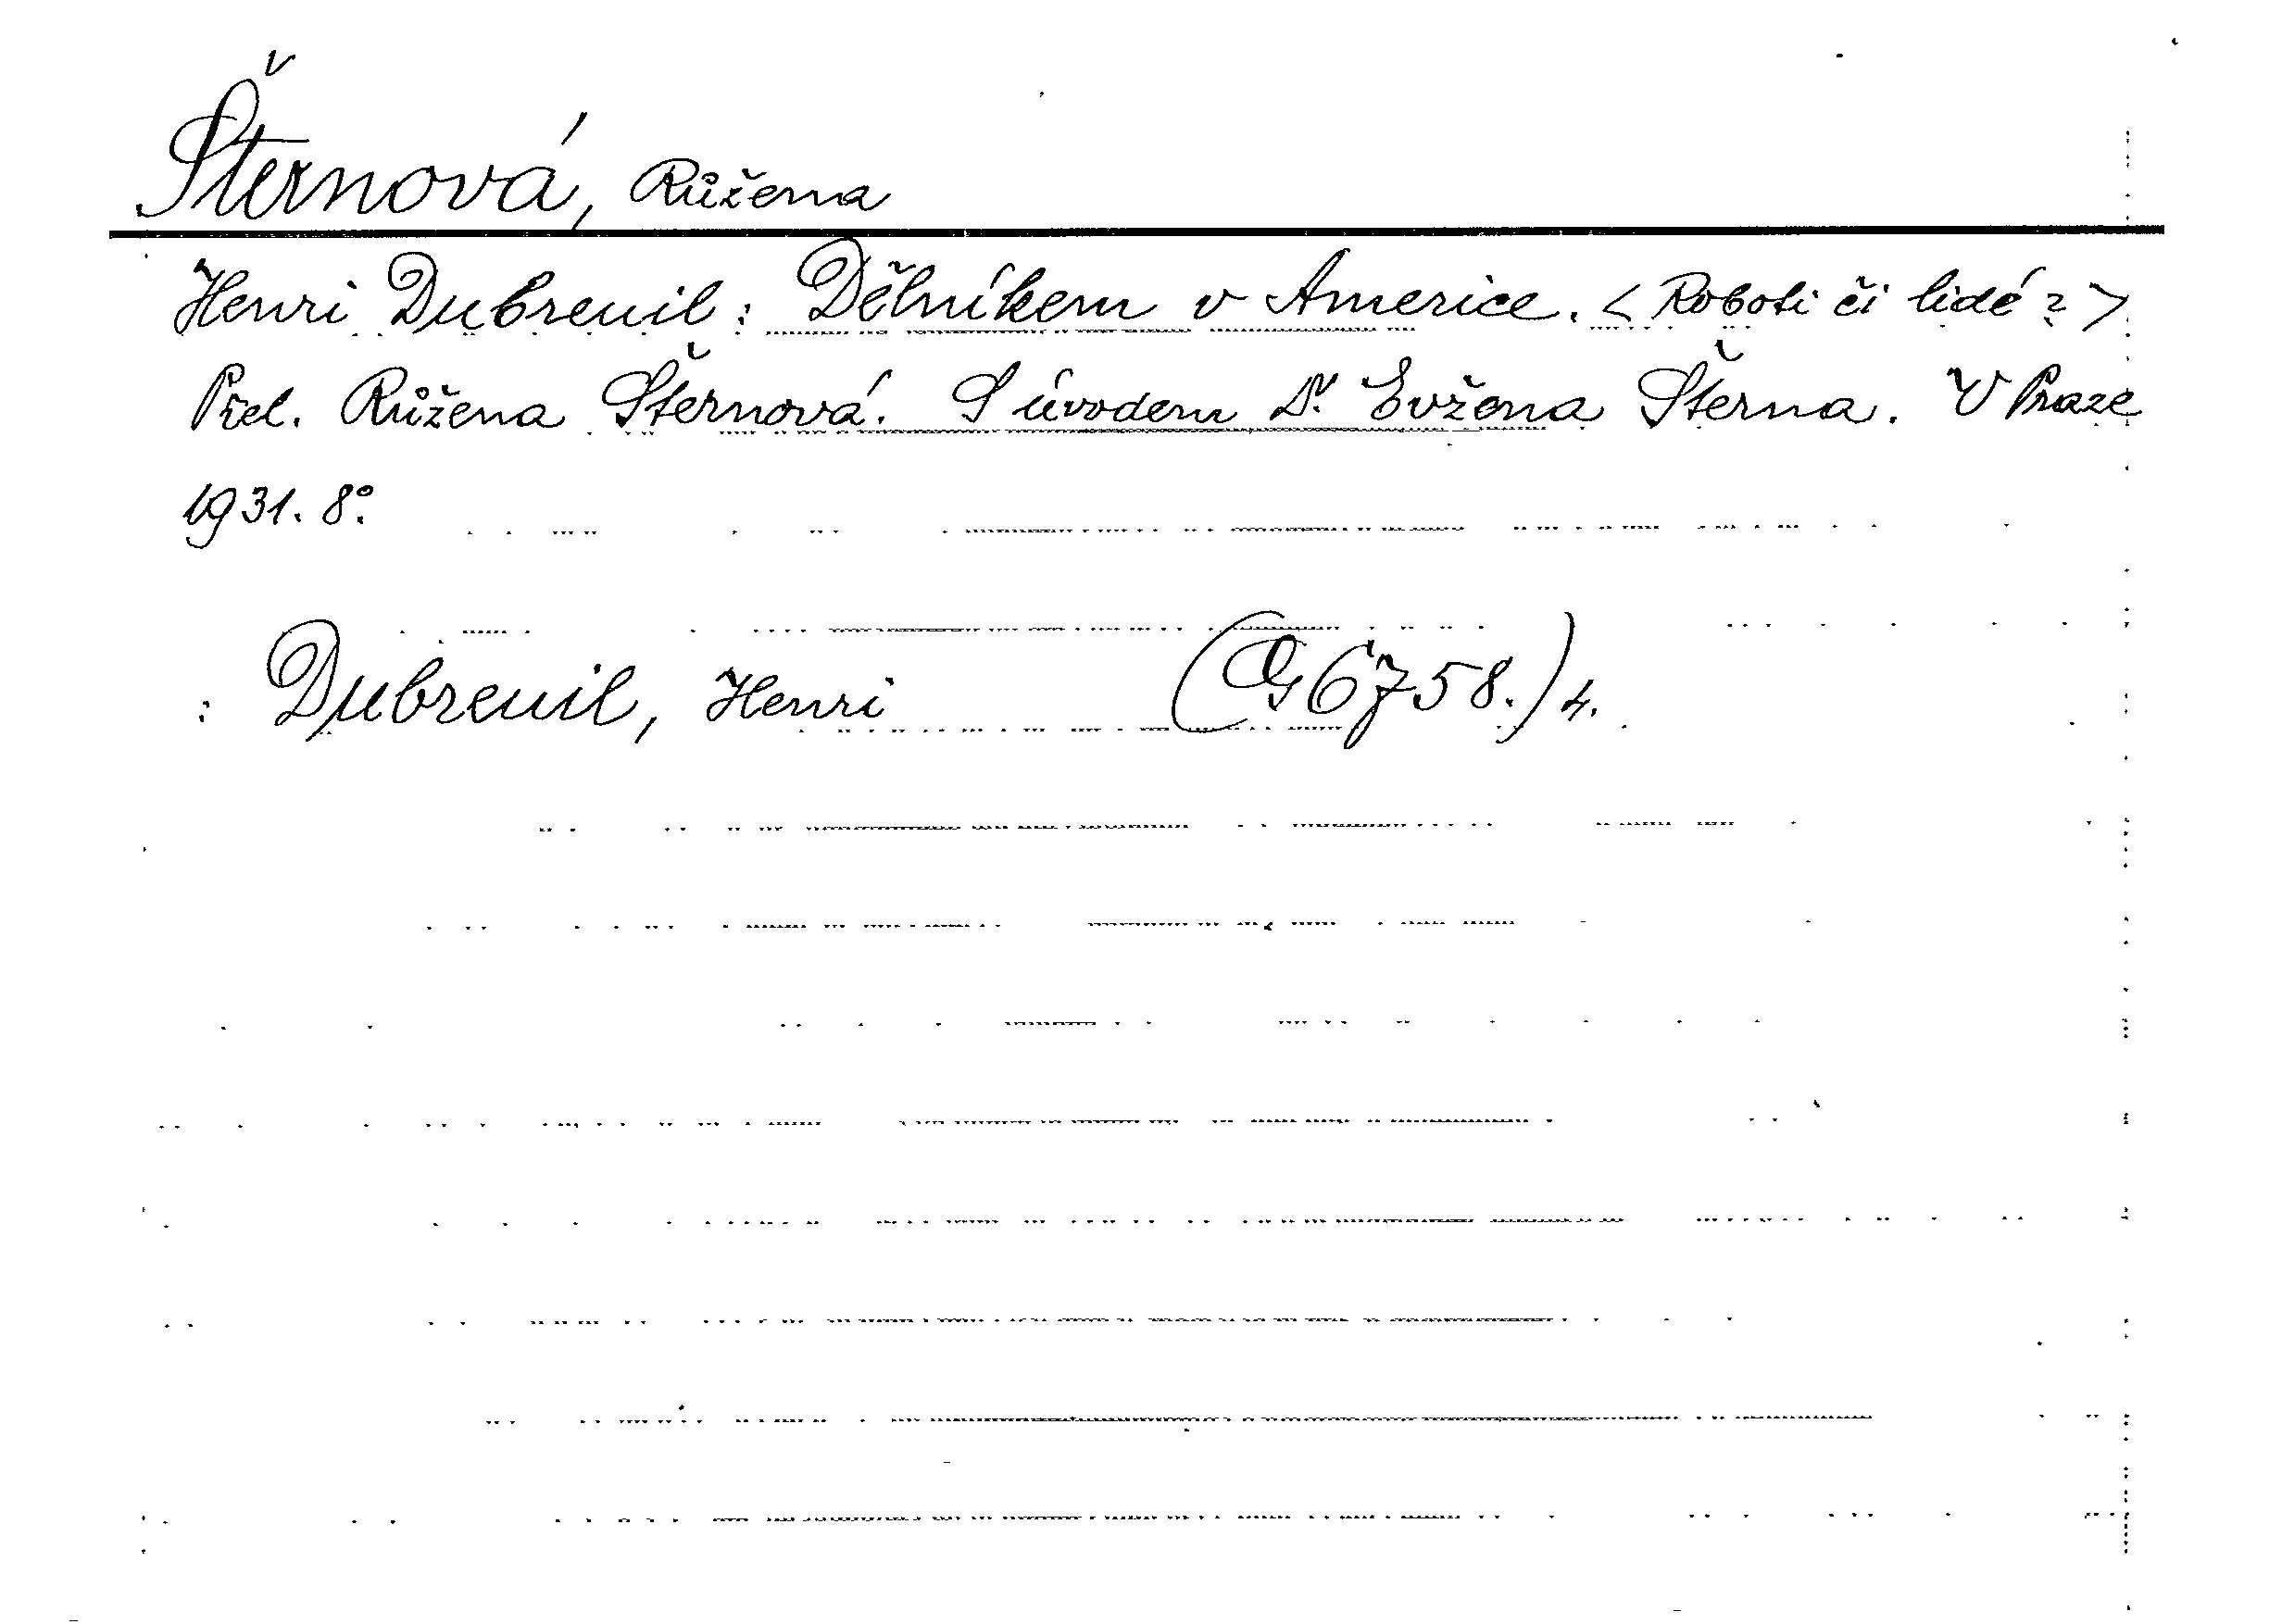 Šternová, Růžena
Henri Dubreuil: Dělníkem v Americe. < Roboti či lidé? >
Přel. Růžena Šternová. S úvodem Dr. Evžena Šterna. V Praze
1931. 8°.
: Dubreuil, Henri (G 6758.) 4.